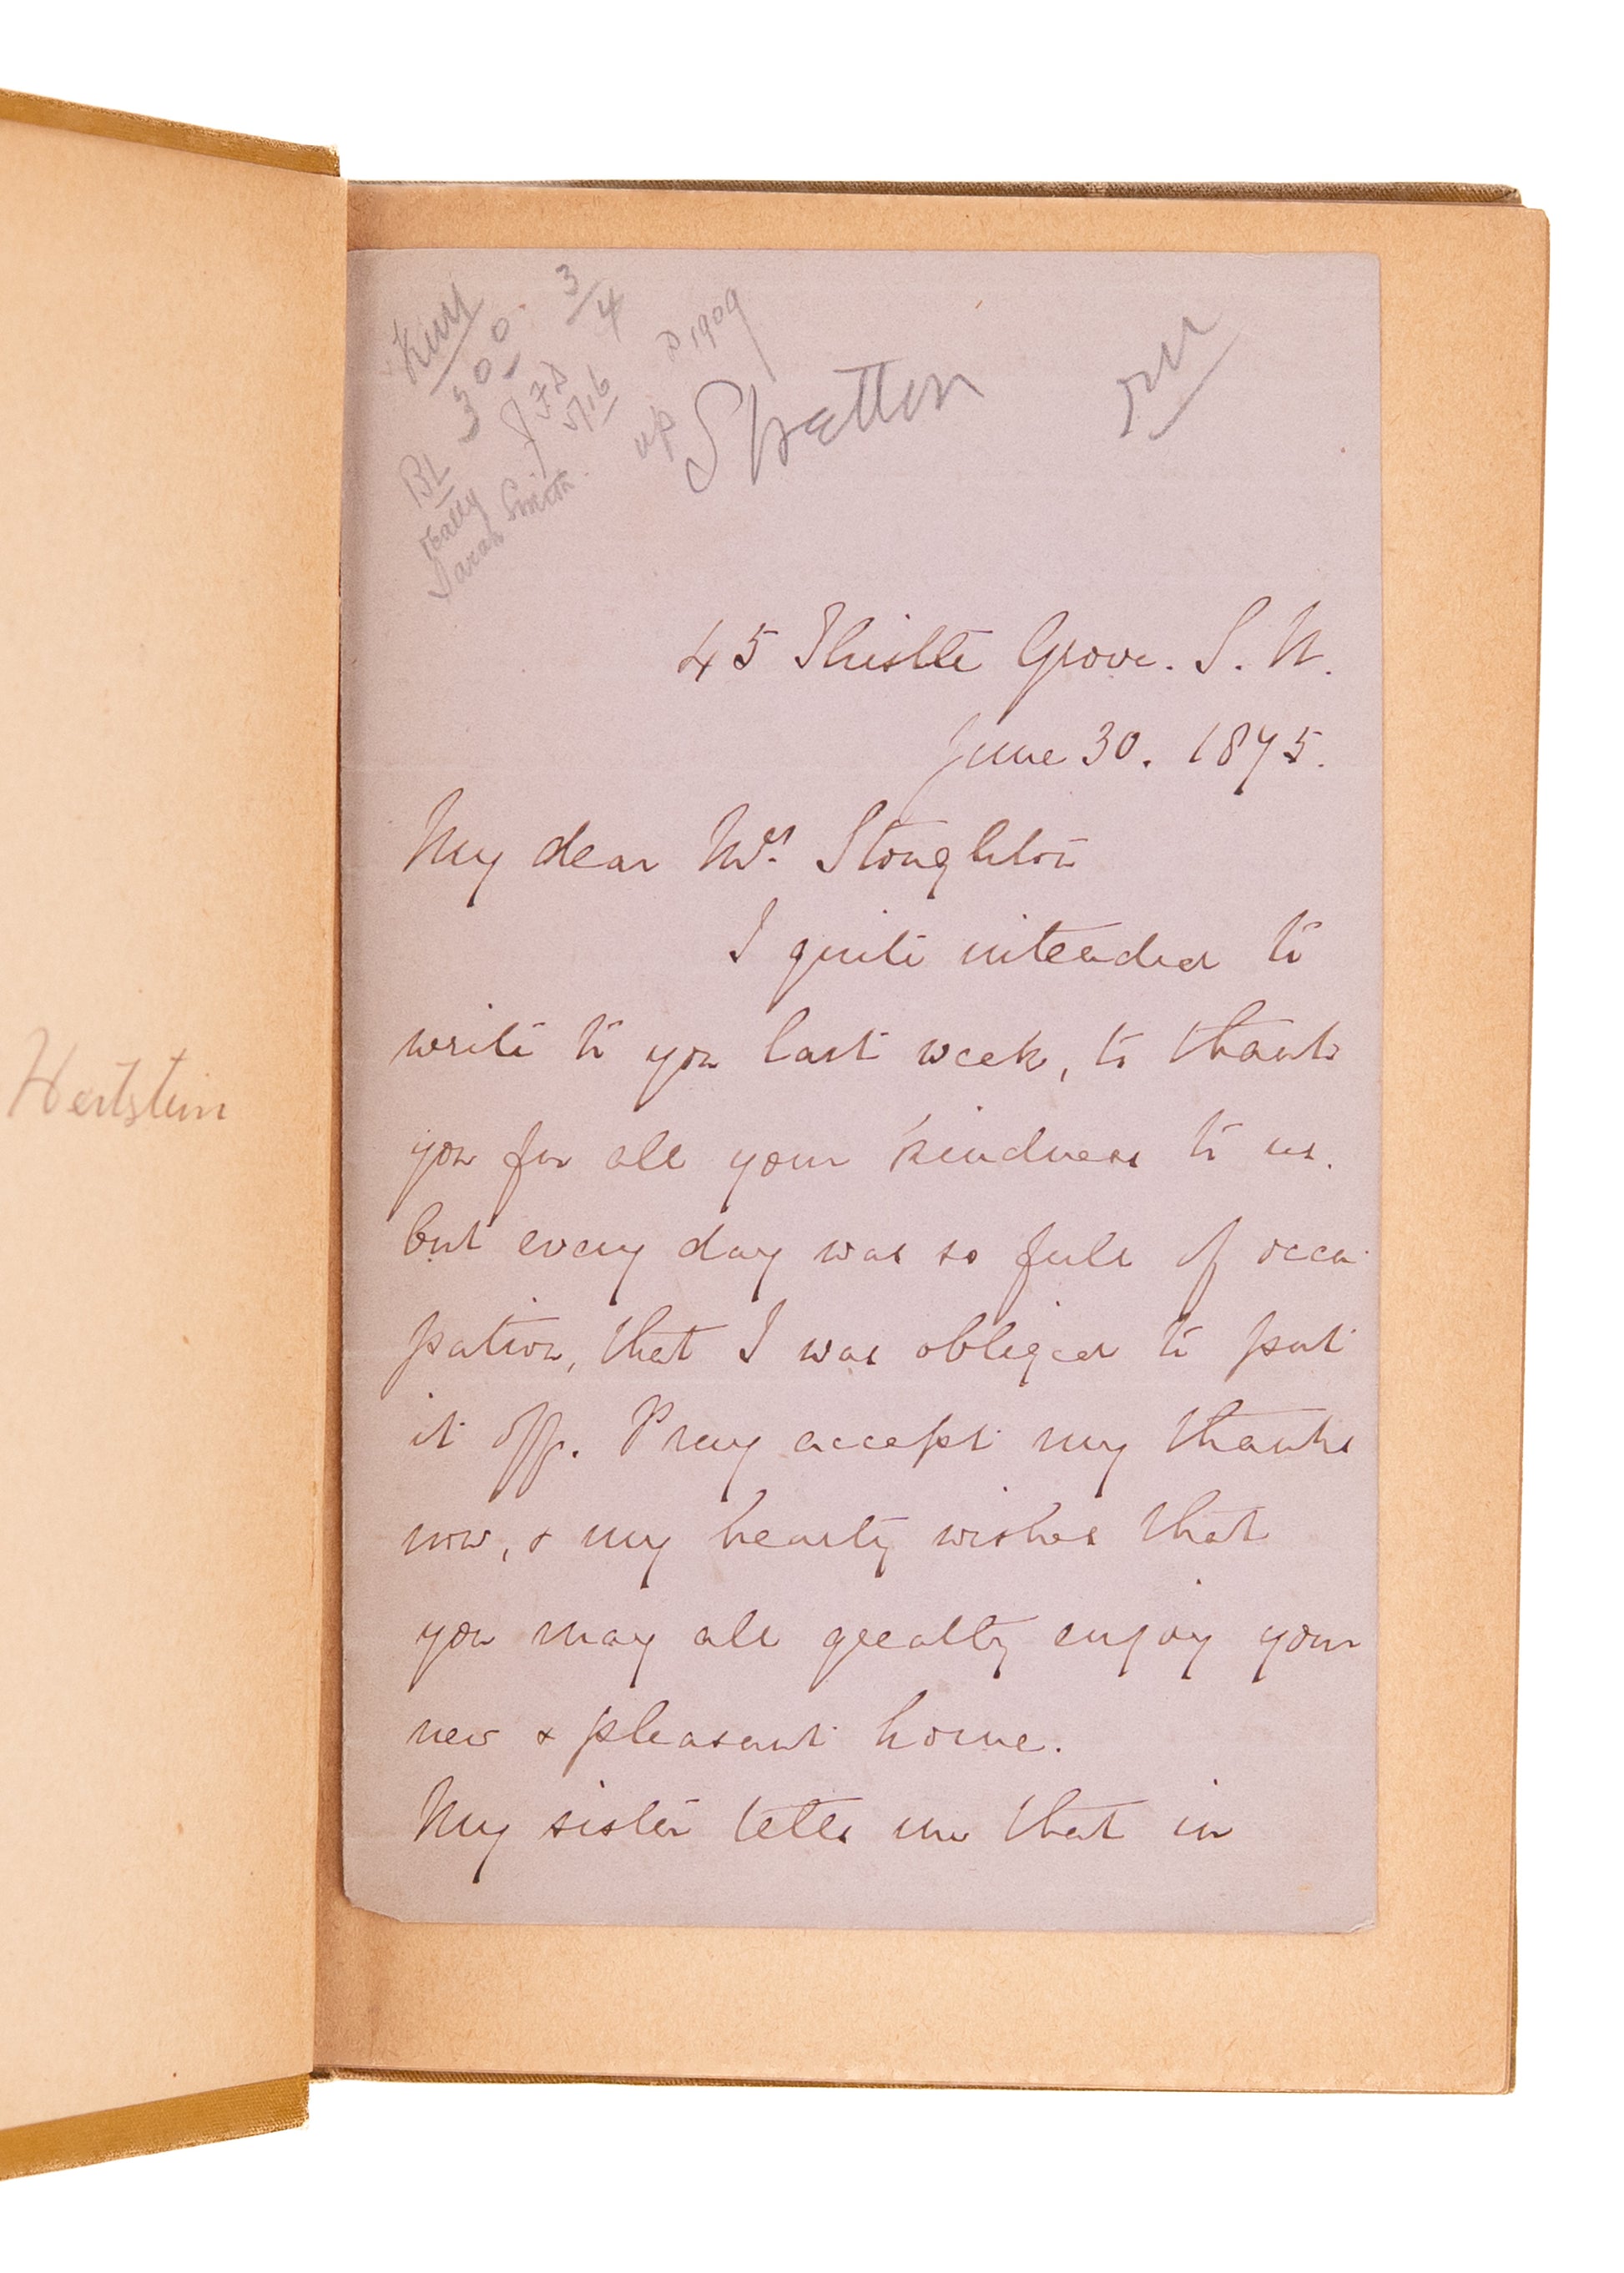 Hertstein
300
3/4
BL
really
Sarah Smith.
up
1909
Stretton
45 Thistle Grove. S. W.
June 30. 1875.
My dear Mrs. Stoughton
I quite intended to
write to you last week, to thank
you for all your kindness to us.
but every day was so full of occu-
pation, that I was obliged to put
it off. Pray accept my thanks
now, & my hearty wishes that
you may all greatly enjoy your
new & pleasant home.
My sister tells me that in